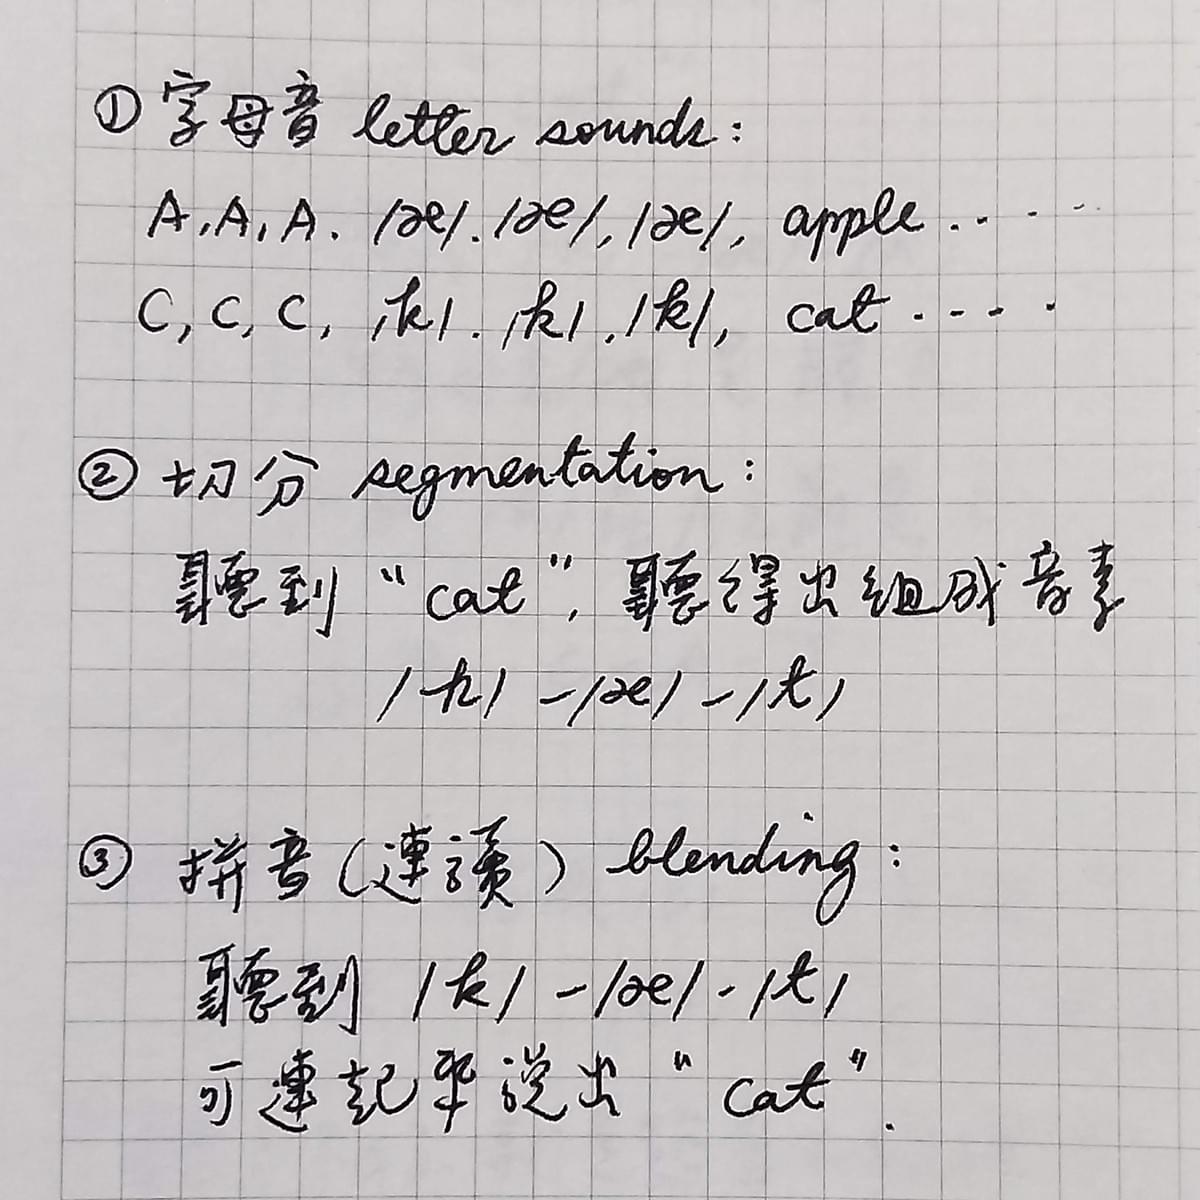 ① 字母音 letter sounds:
A, A, A. /æ/. /æ/, /æ/, apple .....
C, C, C, /k/. /k/. /k/, cat .....
② 切分 segmentation:
聽到 “cat”, 聽得出組成音素
/k/ - /æ/ - /t/
③ 拼音(連讀) blending:
聽到 /k/ - /æ/ - /t/
可連起來說出 “cat”.